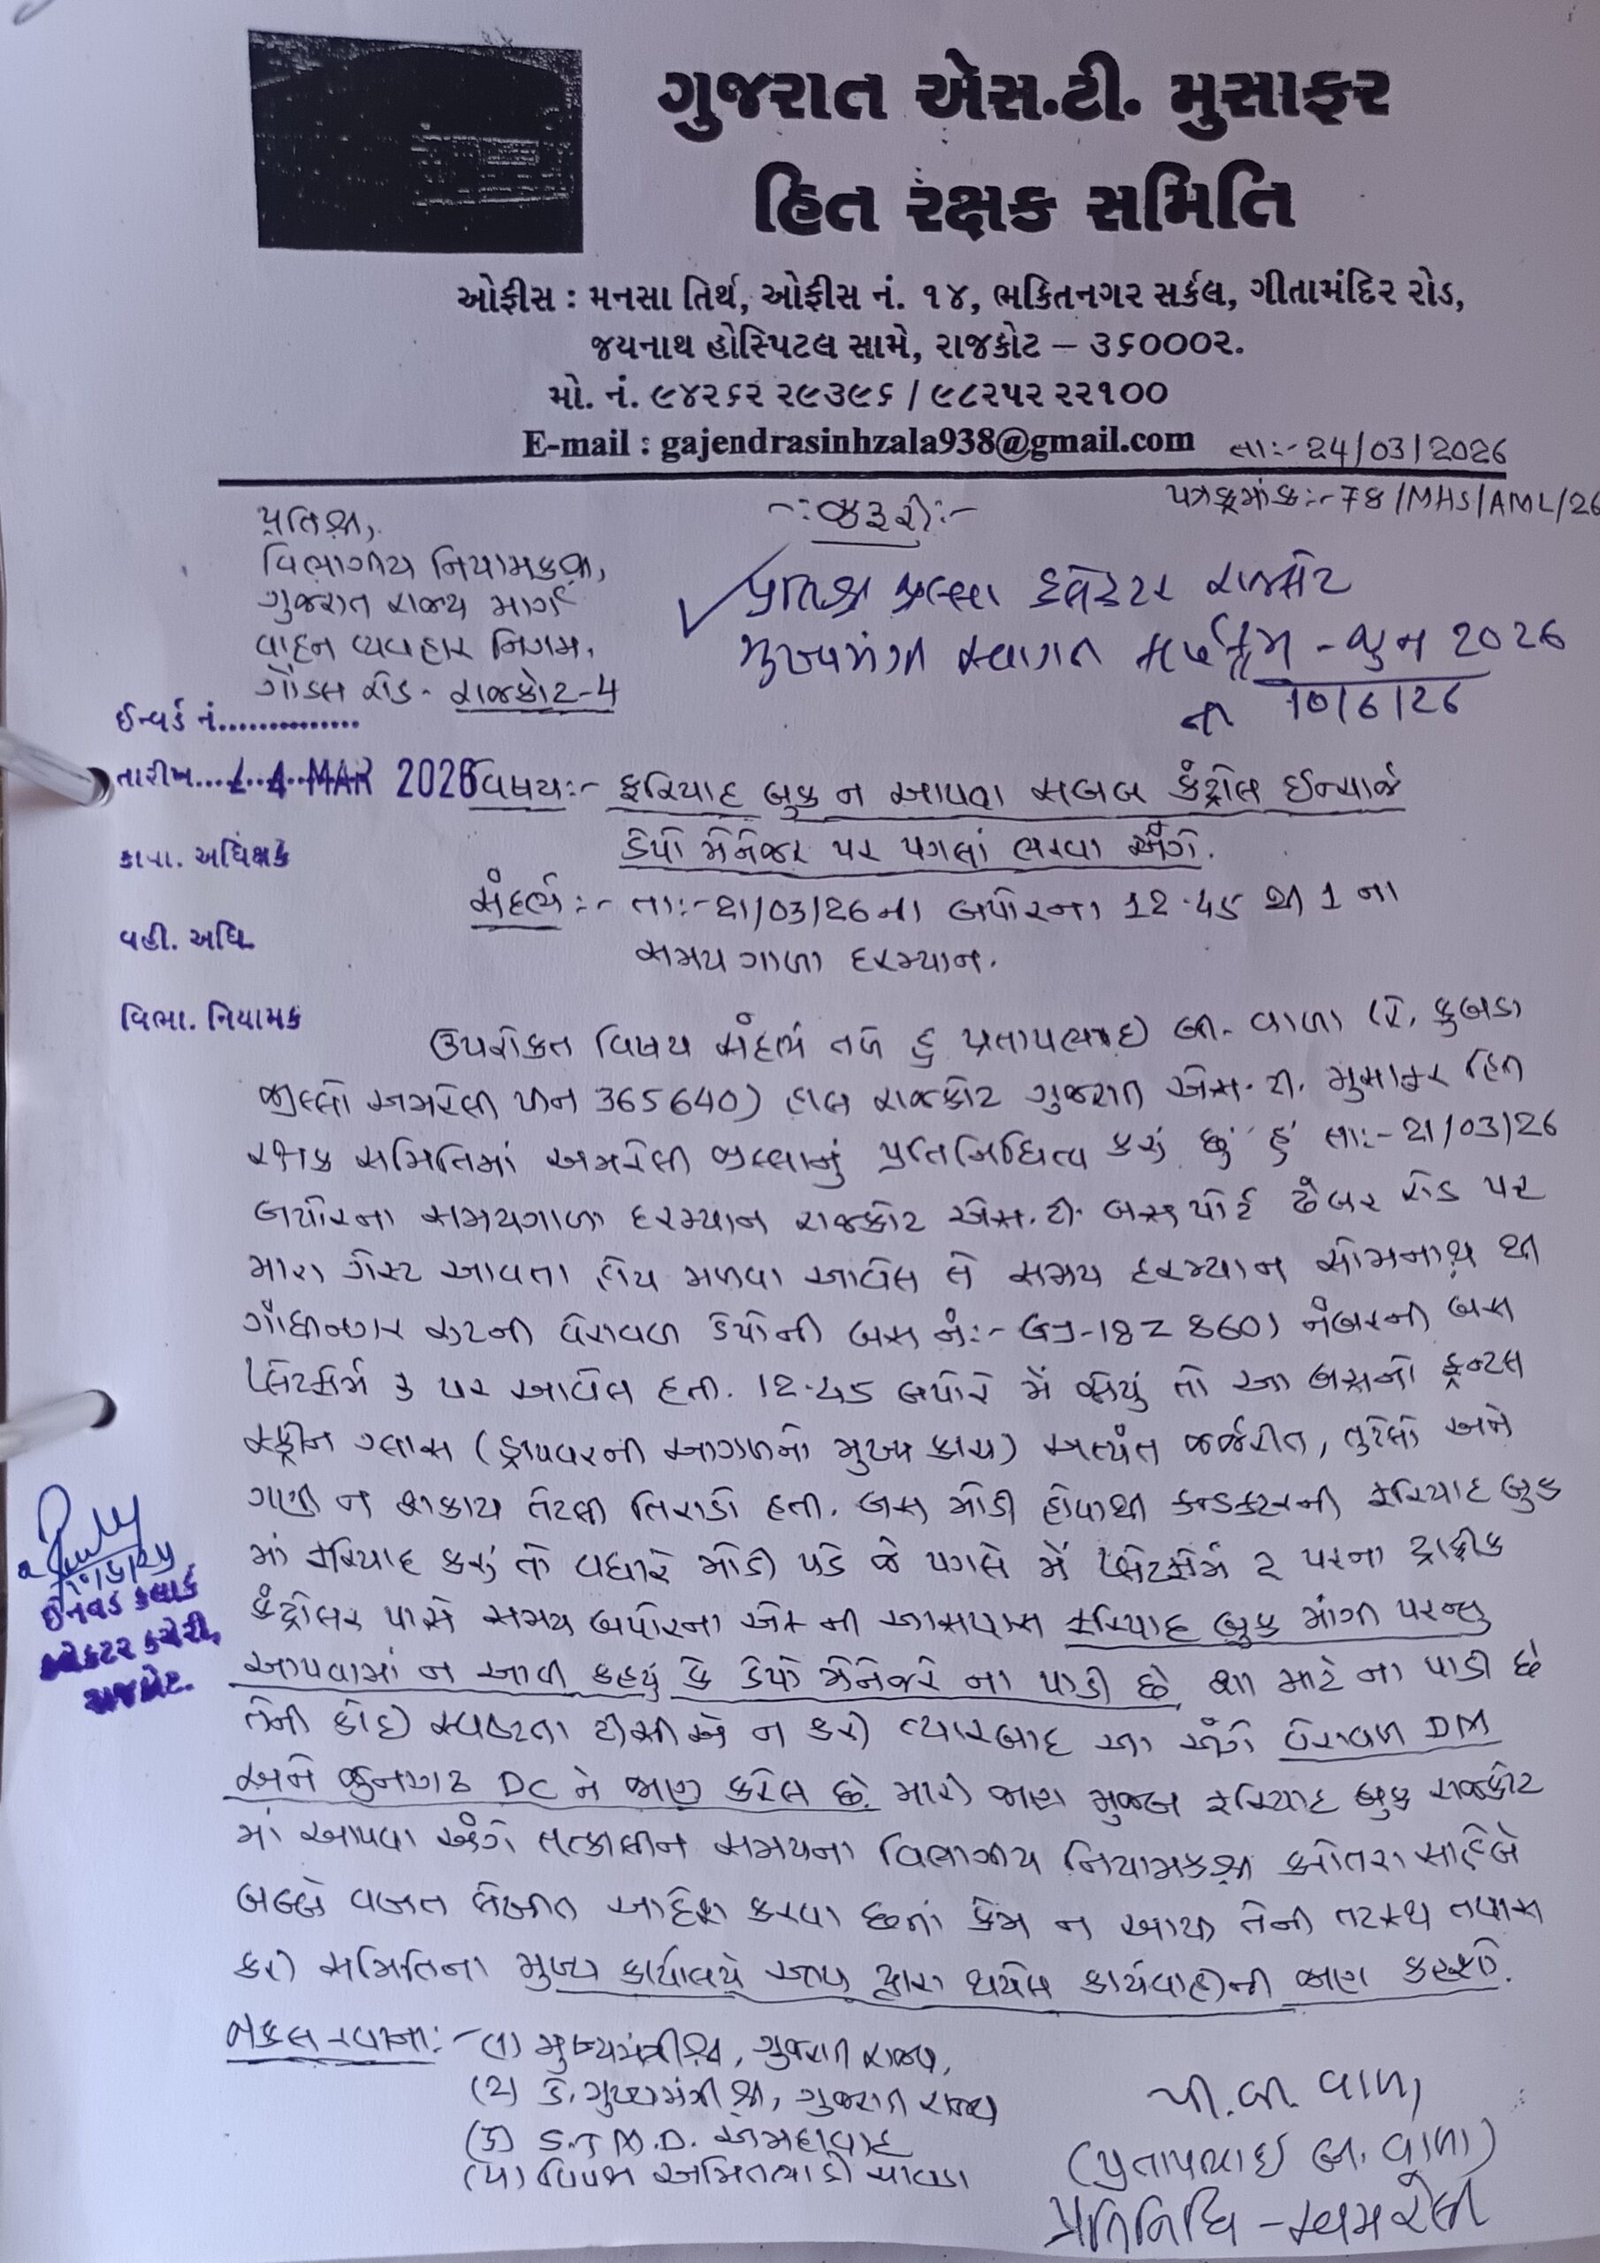 ગુજરાત એસ.ટી. મુસાફર
હિત રક્ષક સમિતિ
ઓફીસ : મનસા તિર્થ, ઓફીસ નં. ૧૪, ભકિતનગર સર્કલ, ગીતામંદિર રોડ,
જયનાથ હોસ્પિટલ સામે, રાજકોટ – ૩૬૦૦૦૨.
મો. નં. ૯૪૨૬૨ ૨૯૩૯૬ / ૯૮૨૫૨ ૨૨૧૦૦
E-mail : gajendrasinhzala938@gmail.com
તાઃ-24/03/2026
પત્રક્રમાંકઃ-78/MHS/AML/26
-ઃજરૂરીઃ-
પ્રતિશ્રી,
વિભાગીય નિયામકશ્રી,
ગુજરાત રાજ્ય માર્ગ
વાહન વ્યવહાર નિગમ,
ગોંડલ રોડ- રાજકોટ-4
પ્રતિશ્રી જીલ્લા કલેકટર રાજકોટ
મુખ્યમંત્રી સ્વાગત કાર્યક્રમ - જુન 2026
ની 10/6/26
ઈન્વર્ડ નં..............
તારીખ.... MAR 2026
કાચા. અધિક્ષક
વહી. અધિ.
વિભા. નિયામક
વિષયઃ- ફરિયાદ બુક ન આપવા સબબ કંટ્રોલ ઈન્ચાર્જ
ડેપો મેનેજર પર પગલાં ભરવા અંગે.
સંદર્ભઃ- તાઃ-21/03/26 ના બપોરના 12.45 થી 1 ના
સમય ગાળા દરમ્યાન.
ઉપરોકત વિષય સંદર્ભ તળે હું પ્રતાપભાઈ બી. વાળા (રે. કુબડા
જીલ્લો અમરેલી પીન 365640) હાલ રાજકોટ ગુજરાત એસ.ટી. મુસાફર હિત
રક્ષક સમિતિમાં અમરેલી જીલ્લાનું પ્રતિનિધિત્વ કરું છું હું તાઃ-21/03/26
બપોરના સમયગાળા દરમ્યાન રાજકોટ એસ.ટી. બસ પોર્ટ ઢેબર રોડ પર
મારા ગેસ્ટ આવતા હોય મળવા આવેલ તે સમય દરમ્યાન સોમનાથ થી
ગાંધીનગર રુટની વેરાવળ ડેપોની બસ નંઃ- GJ-18Z 8601 નંબરની બસ
પ્લેટફોર્મ 3 પર આવેલ હતી. 12.45 બપોરે મેં જોયું તો આ બસનો ફ્રન્ટલ
સ્ક્રીન ગ્લાસ (ડ્રાયવરની આગળનો મુખ્ય કાચ) અત્યંત જર્જરીત, તુટેલો અને
ગણી ન શકાય તેટલી તિરાડો હતી. બસ મોડી હોવાથી કન્ડકટરની ફરિયાદ બુક
માં ફરિયાદ કરું તો વધારે મોડી પડે જે પગલે મેં પ્લેટફોર્મ 2 પરના ટ્રાફીક
કંટ્રોલર પાસે સમય બપોરના એક ની આસપાસ ફરિયાદ બુક માંગી પરન્તુ
આપવામાં ન આવી કહયું કે ડેપો મેનેજરે ના પાડી છે, શા માટે ના પાડી છે
તેની કોઈ સ્પષ્ટતા ટીસીએ ન કરી ત્યારબાદ આ અંગે વેરાવળ DM
અને જુનાગઢ DC ને જાણ કરેલ છે. મારી જાણ મુજબ ફરિયાદ બુક રાજકોટ
માં આપવા અંગે તત્કાલીન સમયના વિભાગીય નિયામકશ્રી કલોતરા સાહેબે
બબ્બે વખત લેખીત આદેશ કરવા છતાં કેમ ન આપી તેની તટસ્થ તપાસ
કરી સમિતિના મુખ્ય કાર્યાલયે આપ દ્વારા થયેલ કાર્યવાહીની જાણ કરશો.
ઈનવર્ડ કલાર્ક
કલેકટર કચેરી,
રાજકોટ.
નકલ રવાનાઃ- (૧) મુખ્યમંત્રીશ્રી, ગુજરાત રાજ્ય,
(૨) ડે. મુખ્યમંત્રી શ્રી, ગુજરાત રાજ્ય
(૩) S.T M.D. અમદાવાદ
અમિતભાઈ ચાવડા
પી.બી. વાળા
(પ્રતાપભાઈ બી. વાળા)
પ્રતિનિધિ - અમરેલી